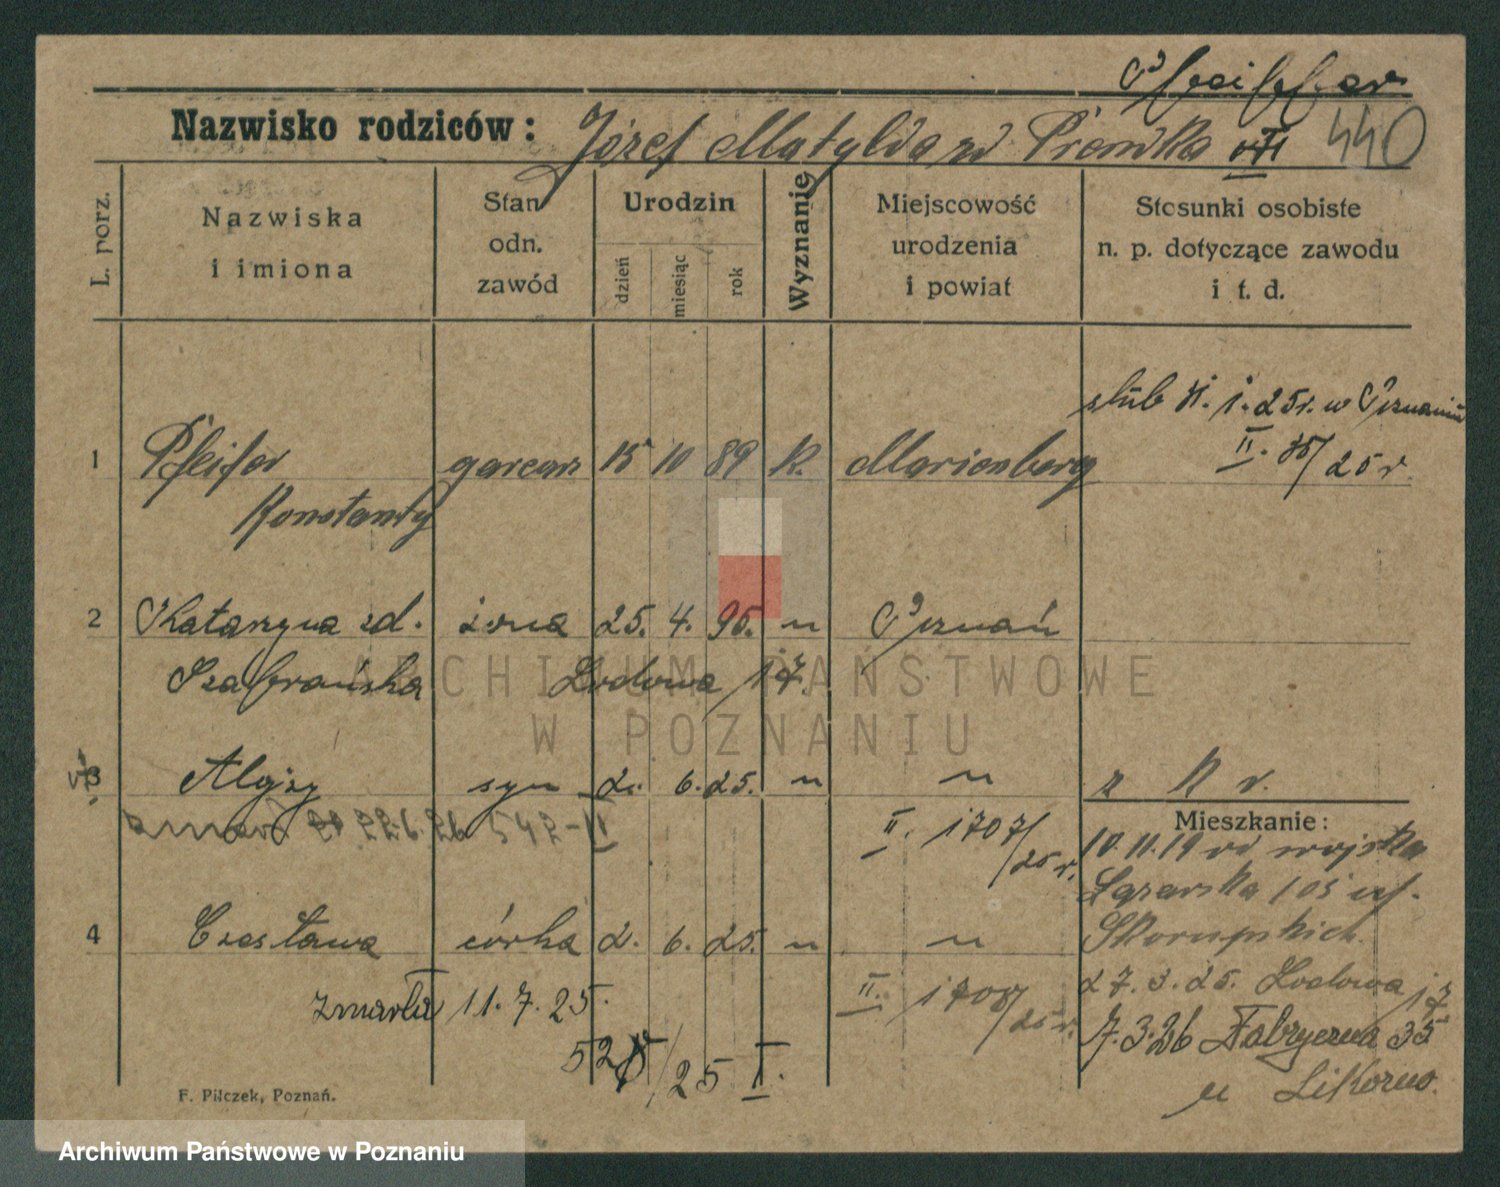 Pfeiffer
Nazwisko rodziców: Józef Matylda zd
440
L. porz.
Nazwiska i imiona
Stan odn. zawód
Urodzin
dzień
miesiąc
rok
Wyznanie
Miejscowość urodzenia i powiat
Stosunki osobiste n. p. dotyczące zawodu i t. d.
ślub 31. 1. 25r. w Poznaniu
II. /25 r.
1 Pfeifer garcarz 15 10 89 K. Marienberg
Konstanty
2 Katarzyna zd. żona 25. 4. 95. " Poznań
Szafrańska Łodowa 17.
3 Alojzy syn 2. 6. 25. " " z K r.
zmarł 22.6.26 542-II
II. 1707/25 r.
Mieszkanie:
10.11.19 od wojska
Łazarska 103 wf.
Skorupskich
4 Czesława córka 2. 6. 25. " "
27. 3. 25. Łodowa 17
zmarła 11. 7. 25.
II. 1708/25 r.
7.3.26 Fabryczna 35
u
528/25 I.
F. Pilczek, Poznań.
ARCHIWUM PAŃSTWOWE
W POZNANIU
Archiwum Państwowe w Poznaniu